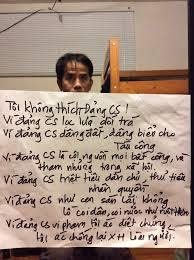 Tôi không thích Đảng CS !
Vì đảng CS lọc lừa dối trá
Vì đảng CS dâng đất, dâng biển cho
Tàu cộng
Vì đảng CS là cội nguồn mọi bất công, và
tham nhũng trong xã hội.
Vì đảng CS triệt tiêu dân chủ, thủ tiêu
nhân quyền
Vì đảng CS như con sán lãi, không
lo coi dân, coi nước như
Vì đảng CS vi phạm tội ác diệt chủng,
tội ác chống lại XH loài người.